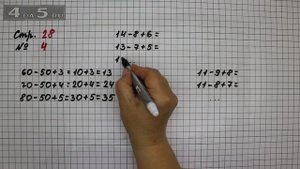 4DA5.
Стр. 28
№ 4
14-8+6=
13-7+5=
1
60-50+3=10+3=13
70-50+4=20+4=24
80-50+5=30+5=35
11-9+8=
11-8+7=
...